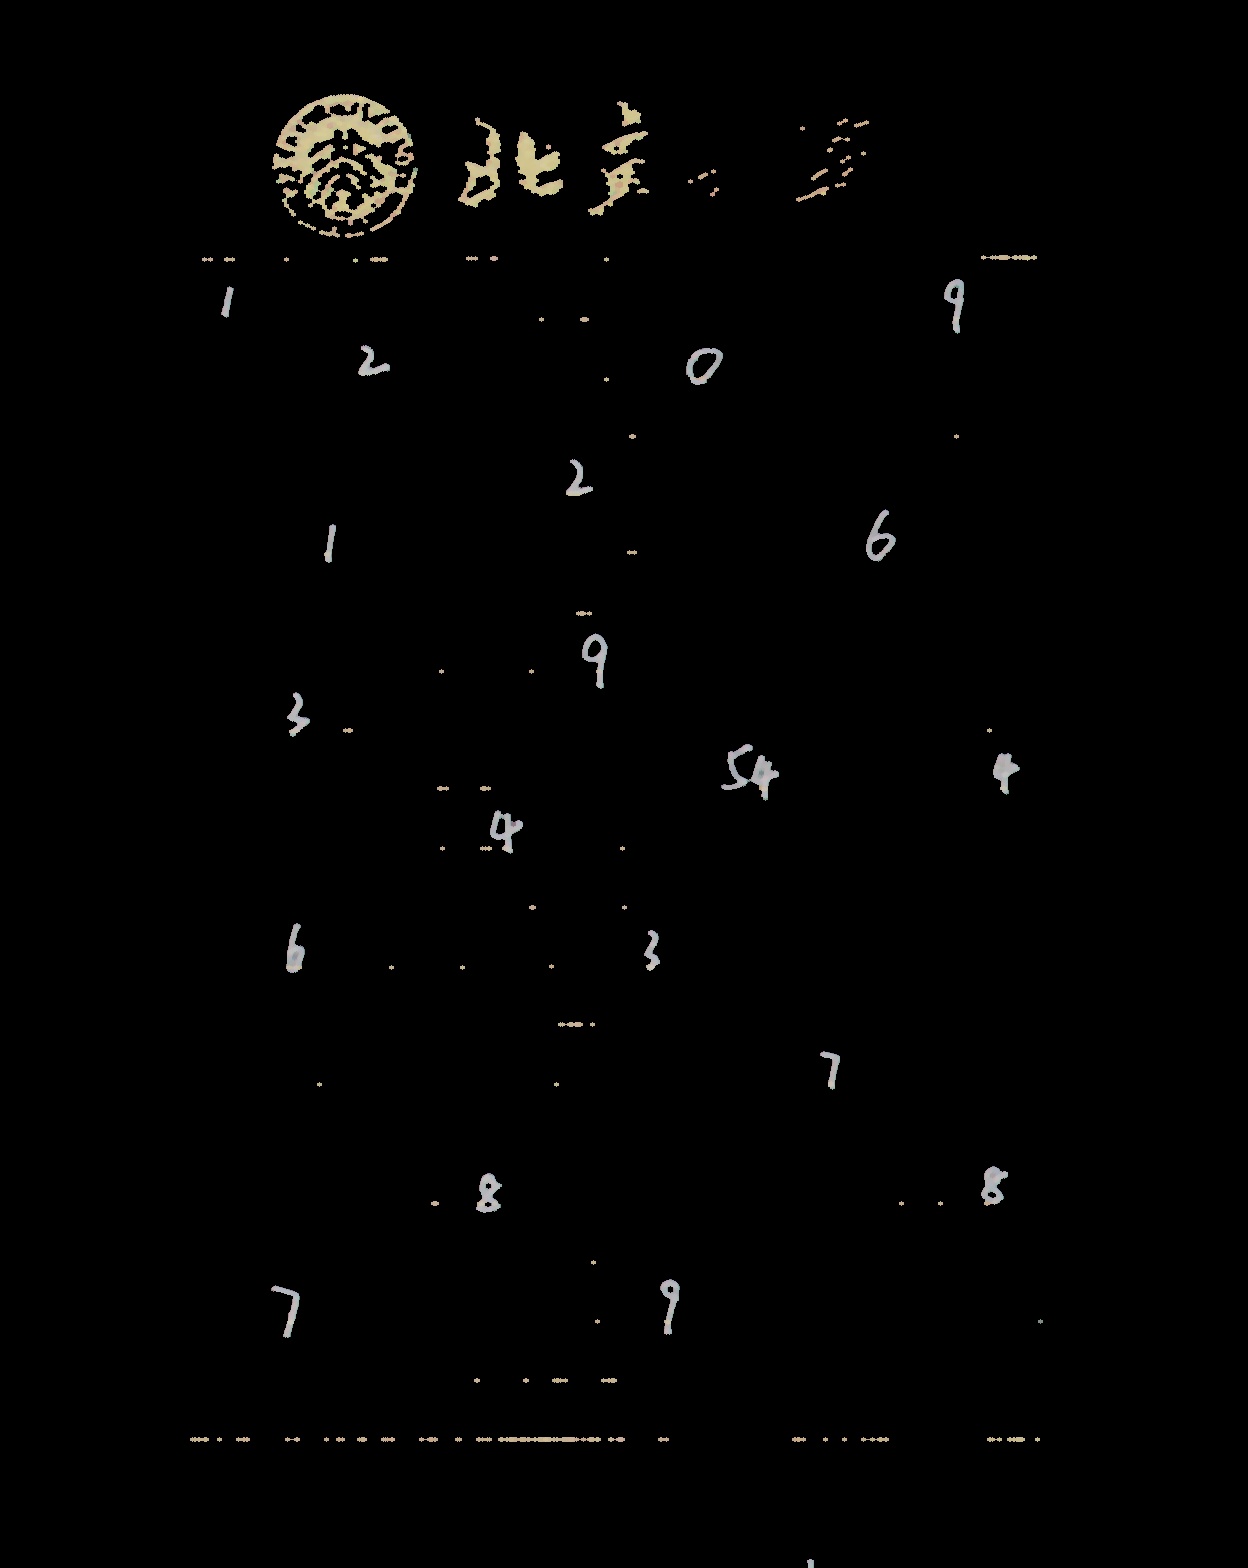 北京
1 9
2 0
2
1 6
9
3
54 4
4
6 3
7
8 8
7 9